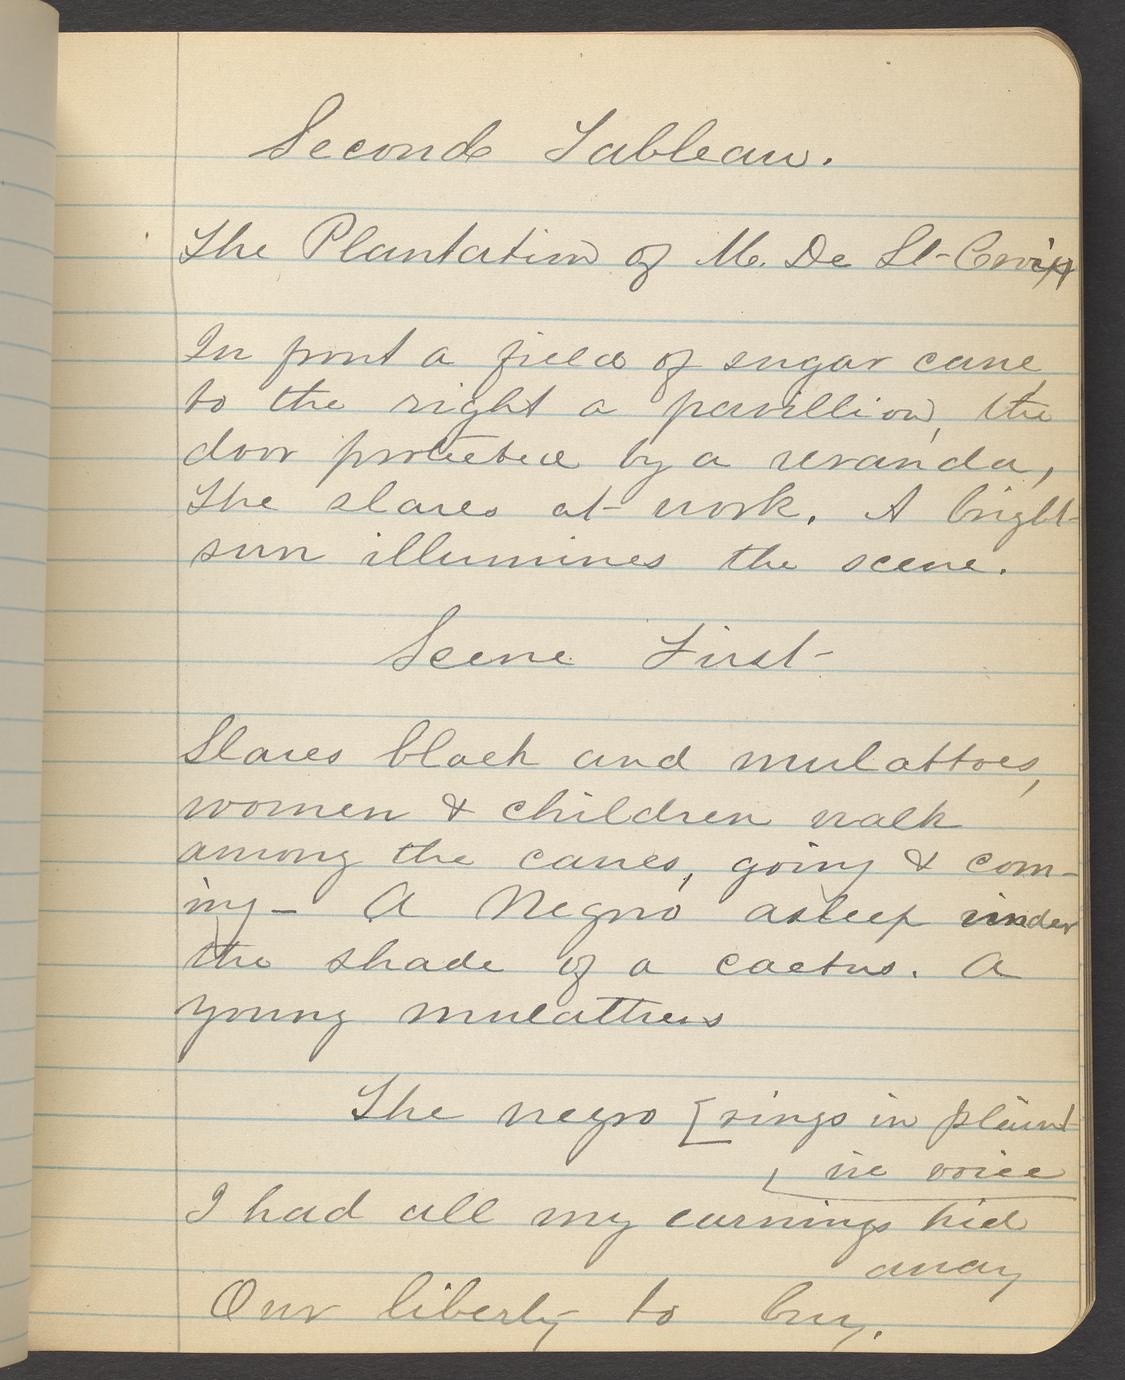 Second Tableau.
The Plantation of M. De St-Croix
In front a field of sugar cane
to the right a pavillion, the
door protected by a veranda,
The slaves at work. A bright
sun illumines the scene.
Scene First-
Slaves black and mulattoes,
women & children walk
among the canes, going & com-
ing - A Negro asleep under
the shade of a cactus. A
young mulattress
The negro [sings in plaint
ive voice
I had all my earnings hid
away
Our liberty to buy.